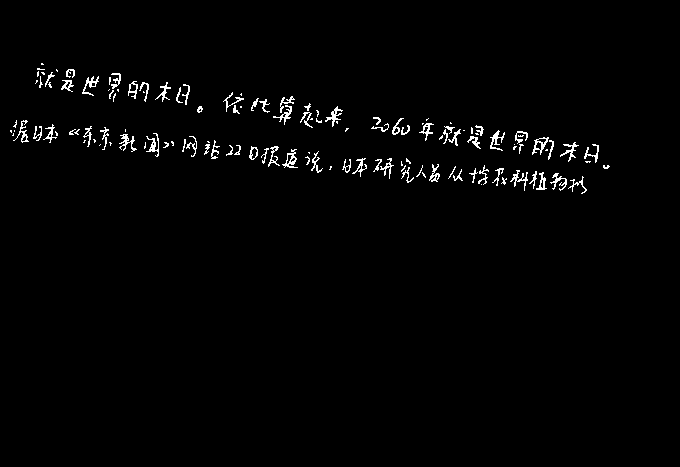 就是世界的末日。依此算起来，2060年就是世界的末日。
据日本《东京新闻》网站22日报道说，日本研究人员从十字花科植物拟